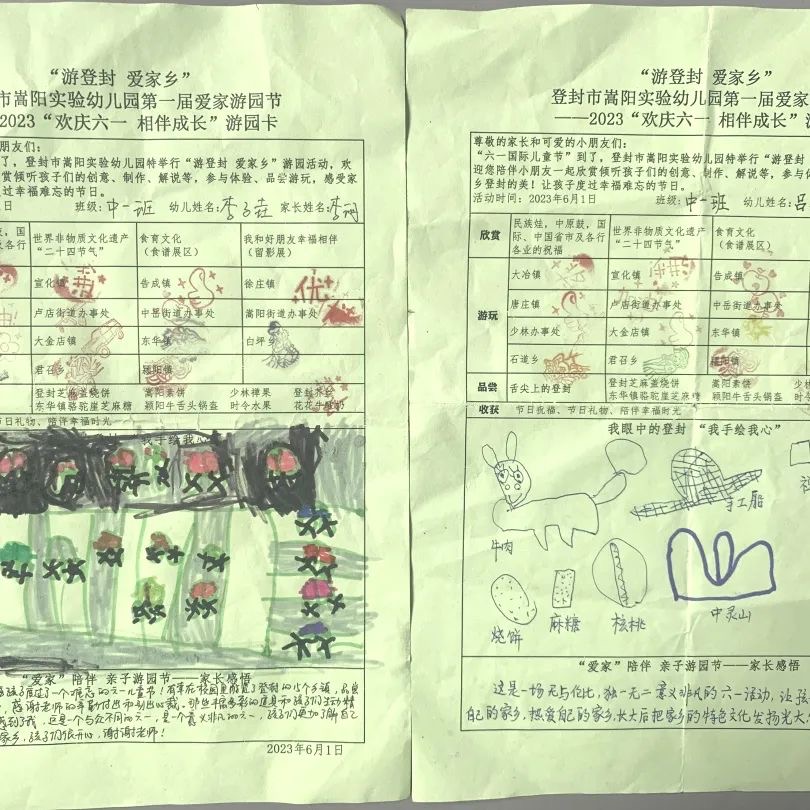 “游登封 爱家乡”
市嵩阳实验幼儿园第一届爱家游园节
2023“欢庆六一 相伴成长”游园卡
朋友们：
了，登封市嵩阳实验幼儿园特举行“游登封 爱家乡”游园活动，欢
赏倾听孩子们的创意、制作、解说等，参与体验、品尝游玩，感受家
过幸福难忘的节日。
1日 班级：中一班 幼儿姓名：李子 家长姓名：李
国
行
世界非物质文化遗产 食育文化 我和好朋友幸福相伴
“二十四节气” （食谱展区） （留影展）
宣化镇 告成镇 徐庄镇 优
卢店街道办事处 中岳街道办事处 嵩阳街道办事处
大金店镇 东华镇 白坪乡
君召乡 颍阳镇
登封芝麻盖烧饼 嵩阳素饼 少林禅果 登封芥丝
东华镇骆驼崖芝麻糖 颍阳牛舌头锅盔 时令水果 花花牛酸奶
节日礼物、陪伴幸福时光
“我手绘我心”
“爱家”陪伴 亲子游园节——家长感悟
孩子度过了一个难忘的六一儿童节！
感谢老师的辛勤付出和别出心裁。
这是一个与众不同的六一，是一个意义非凡的六一，孩子们更加了解自己
家乡，孩子们很开心，谢谢老师！
2023年6月1日
“游登封 爱家乡”
登封市嵩阳实验幼儿园第一届爱家游
——2023“欢庆六一 相伴成长”
尊敬的家长和可爱的小朋友们：
“六一国际儿童节”到了，登封市嵩阳实验幼儿园特举行“游登封
迎您陪伴小朋友一起欣赏倾听孩子们的创意、制作、解说等，参与体
乡登封的美！让孩子度过幸福难忘的节日。
活动时间：2023年6月1日 班级：中一班 幼儿姓名：吕
欣赏 民族娃，中原鼓，国 世界非物质文化遗产 食育文化
际、中国省市及各行 “二十四节气” （食谱展区）
各业的祝福
游玩 大冶镇 宣化镇 告成镇
唐庄镇 卢店街道办事处 中岳街道办事处
少林办事处 大金店镇 东华镇
石道乡 君召乡 颍阳镇
品尝 舌尖上的登封 登封芝麻盖烧饼 嵩阳素饼
东华镇骆驼崖芝麻糖 颍阳牛舌头锅盔 时
收获 节日祝福、节日礼物、陪伴幸福时光
我眼中的登封 “我手绘我心”
手工船
牛肉
烧饼 麻糖 核桃 中灵山
“爱家”陪伴 亲子游园节——家长感悟
这是一场无与伦比，独一无二意义非凡的六一活动，让孩
自己的家乡，热爱自己的家乡，长大后把家乡的特色文化发扬光大